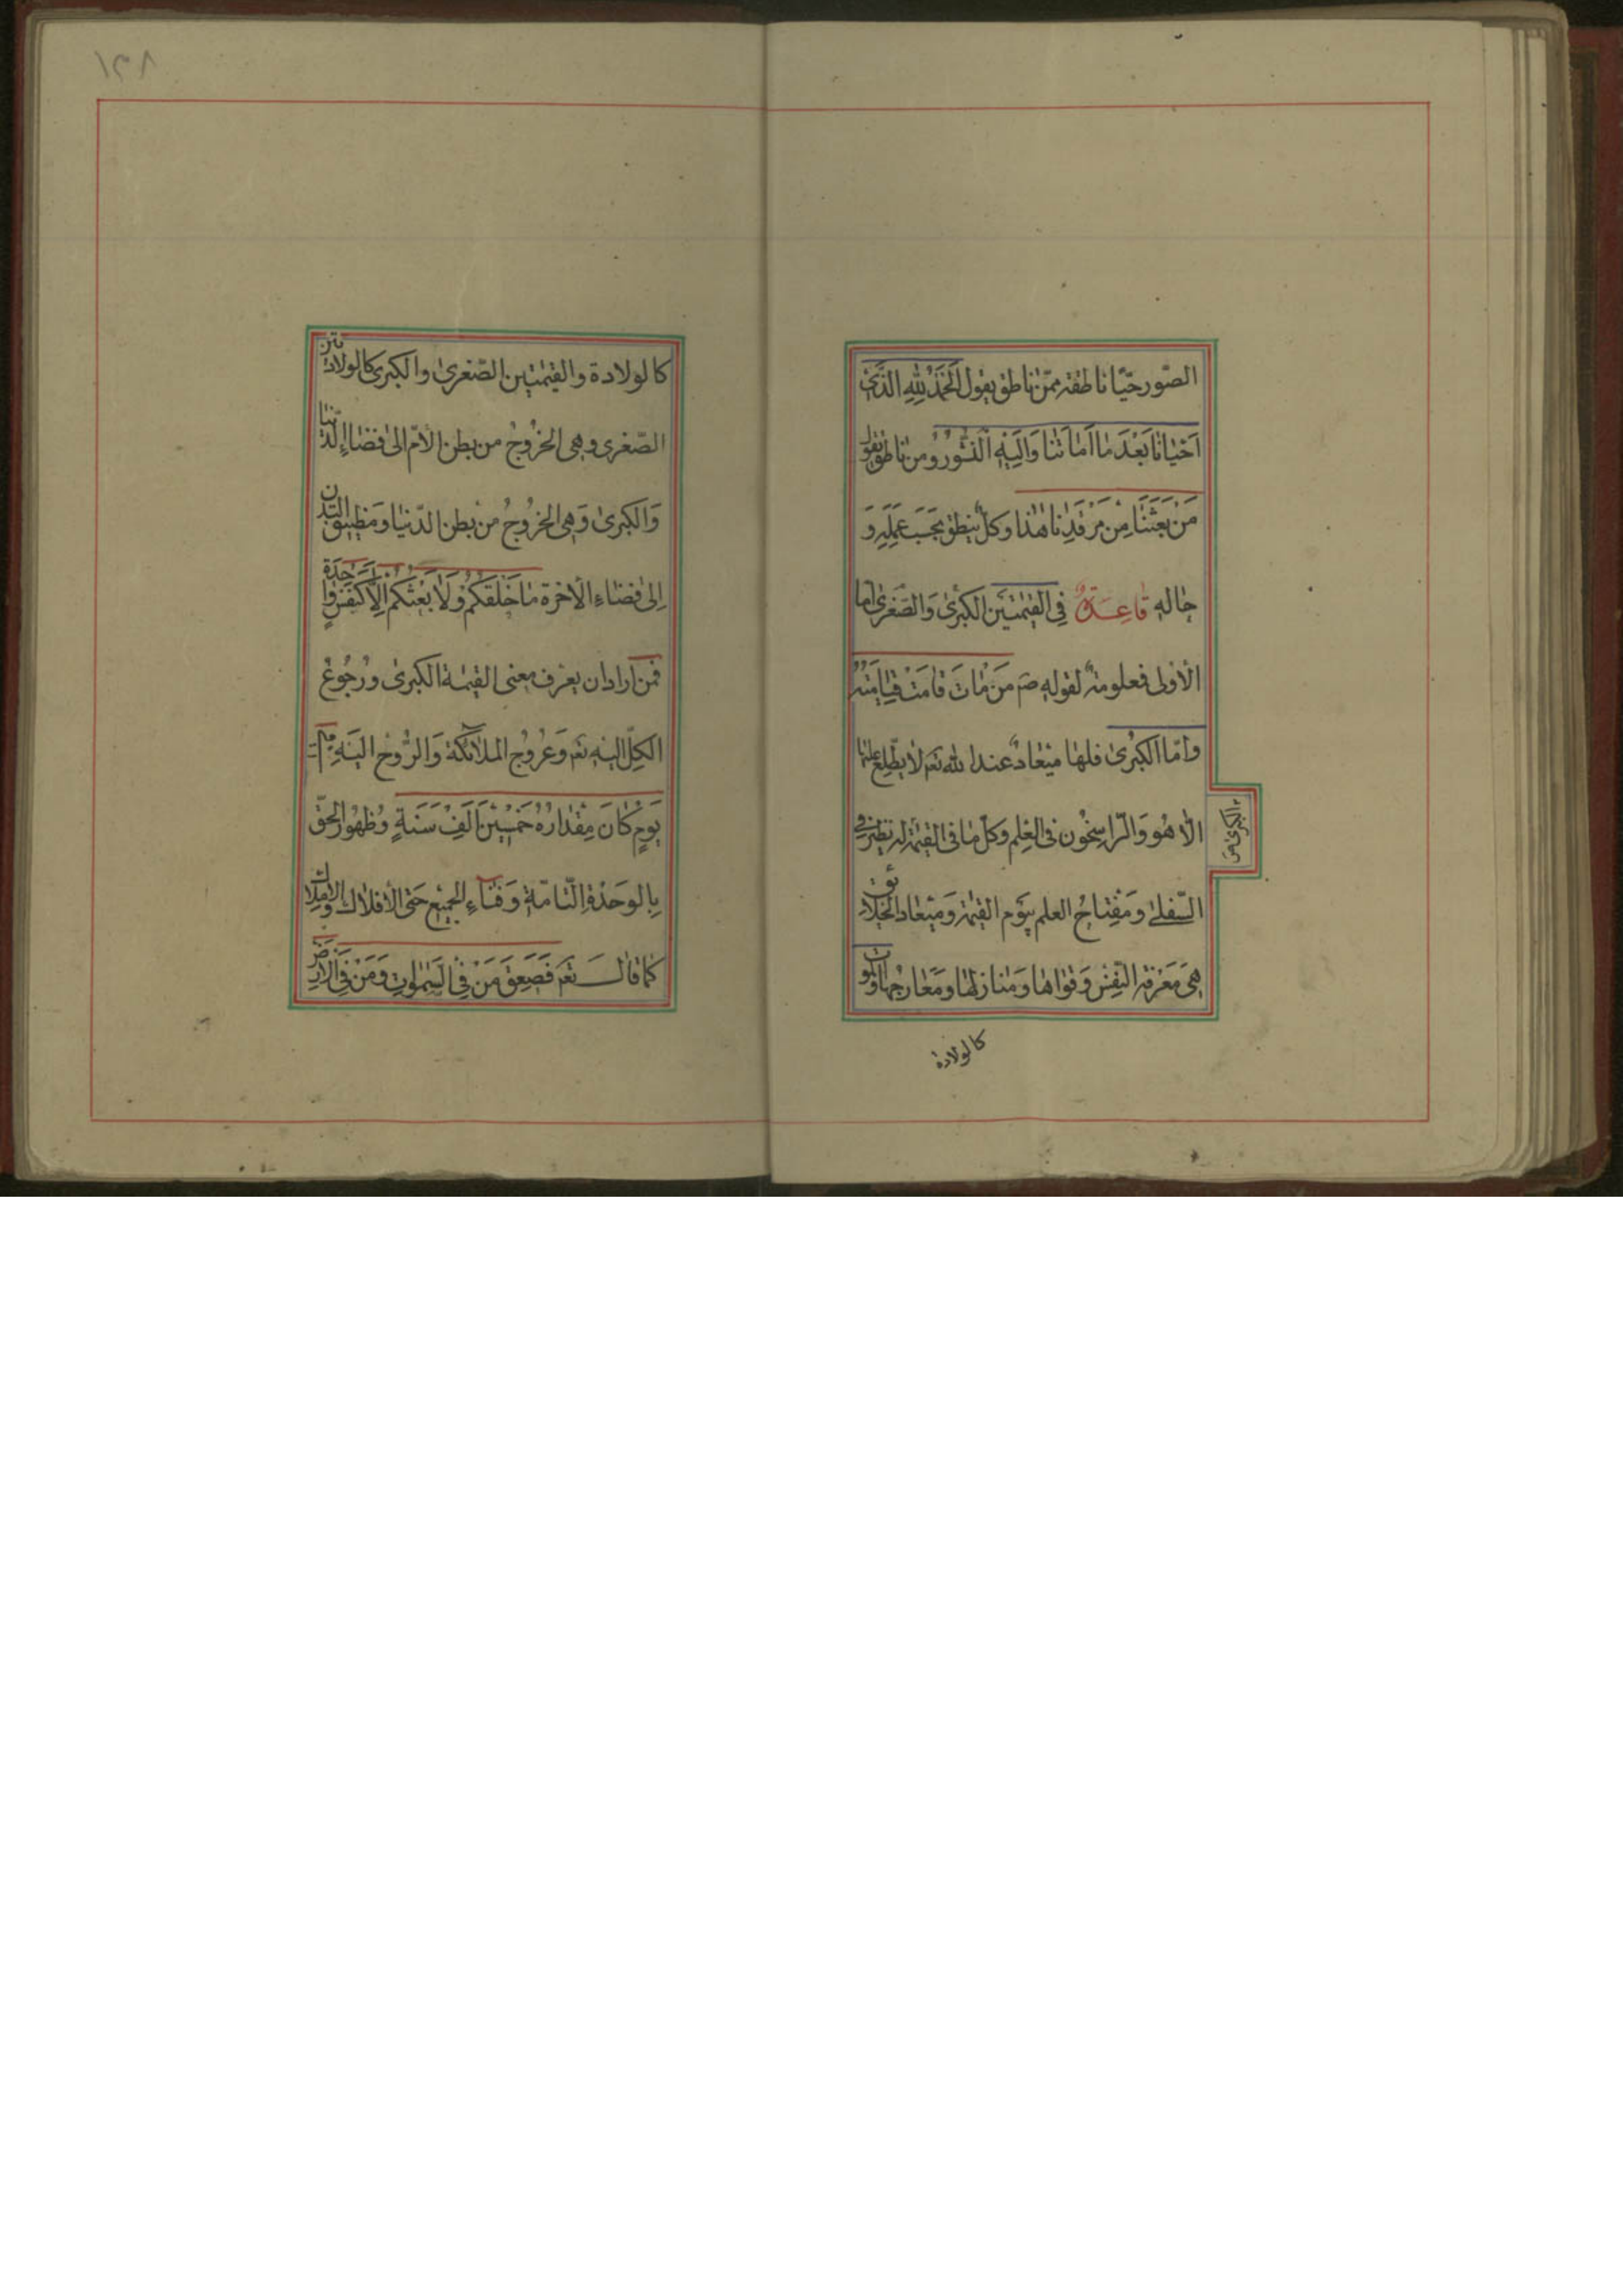 الصّور حيًّا ناطقة فمن ناطق يقول اَلْحَمْدُ لِلّٰهِ الَّذي
اَحْيانا بَعْدَ ما اَماتَنا وَاِلَيْهِ النُّشُورُ ومن ناطق يقول
مَنْ بَعَثَنا مِنْ مَرْقَدِنا هٰذا وكلٌّ ينطق بحَسَب عَمَلِهِ وَ
حاله قاعِدَةٌ فِي القيٰمتَين الكبرىٰ وَالصّغرىٰ اما
الأولى فمعلومة لقوله صَ مَنْ ماتَ فَقامَتْ قِيامَتُهُ
وامّا الكبرىٰ فلها ميعادٌ عند الله تعَ لا يطّلع عليها
الّا هُو وَالرّاسِخُون فى العِلمِ وكلّ ما فى القيٰمة له نظير في
الكبرىٰ من
السّفلىٰ ومفتاحُ العلم بيَوم القيٰمة وَميعاد الخلائق
هِيَ مَعْرفة النّفْس وَقواها وَمنازلها ومَعارجها والموت
كالولادة
١٢٨
كالولادة والقيٰمتين الصّغرىٰ والكبرى كالولادتين
الصّغرى وهى الخرُوجُ من بطن الأمّ الىٰ فضاءِ الدّنيا
وَالكبرىٰ وَهى الخرُوجُ من بطن الدّنيا وَمضيق البَدن
اِلىٰ فضاءِ الأخرة ما خَلْقُكُمْ وَلا بَعْثُكُمْ اِلّا كَنَفْسٍ واحِدَةٍ
فمن اراد ان يعرف معنى القيٰمة الكبرىٰ ورُجُوعَ
الكلِّ اليهِ تعَ وَعرُوج الملائكة وَالرُّوح اليهِ في
يَومٍ كانَ مِقْدارُهُ خَمْسينَ اَلْفَ سَنَةٍ وَظهُور الحقّ
بِالوَحدة التّامّة وَفناءِ الجميع حَتى الأفلاك والاملاك
كما قال تعَ فَصَعِقَ مَنْ فِي السَّمٰواتِ وَمَنْ فِي الْاَرْضِ